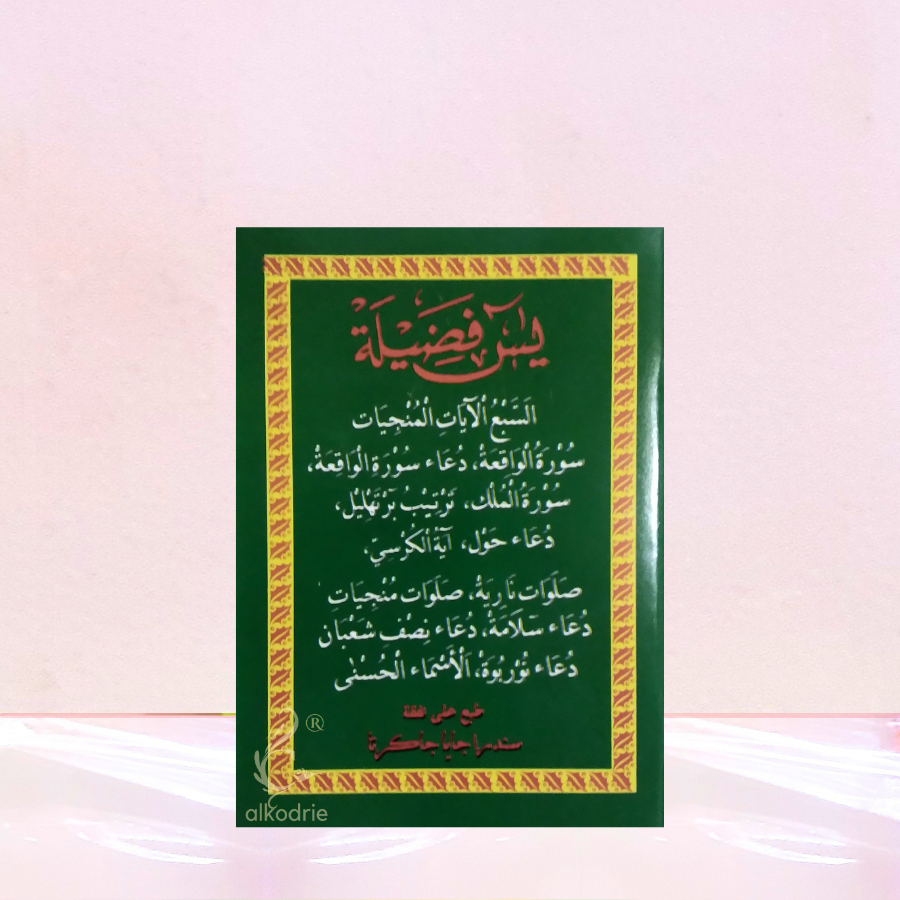 يٰسٓ فَضِيْلَة
اَلسَّبْعُ الْآيَاتِ الْمُنْجِيَات
سُوْرَةُ الْوَاقِعَةْ، دُعَاء سُوْرَةِ الْوَاقِعَةْ،
سُوْرَةُ الْمُلْك، تَرْتِيْبُ بَرْتَهْلِيْل،
دُعَاء حَوْل، آيَةُ الْكُرْسِيّ،
صَلَوَات نَارِيَةْ، صَلَوَات مُنْجِيَاتِ
دُعَاء سَلَامَةْ، دُعَاء نِصْفِ شَعْبَان
دُعَاء نُوْرْبُوَةْ، اَلْأَسْمَاء الْحُسْنٰى
طبع على نفقة
سندرا جايا جاكرتا
®
alkodrie